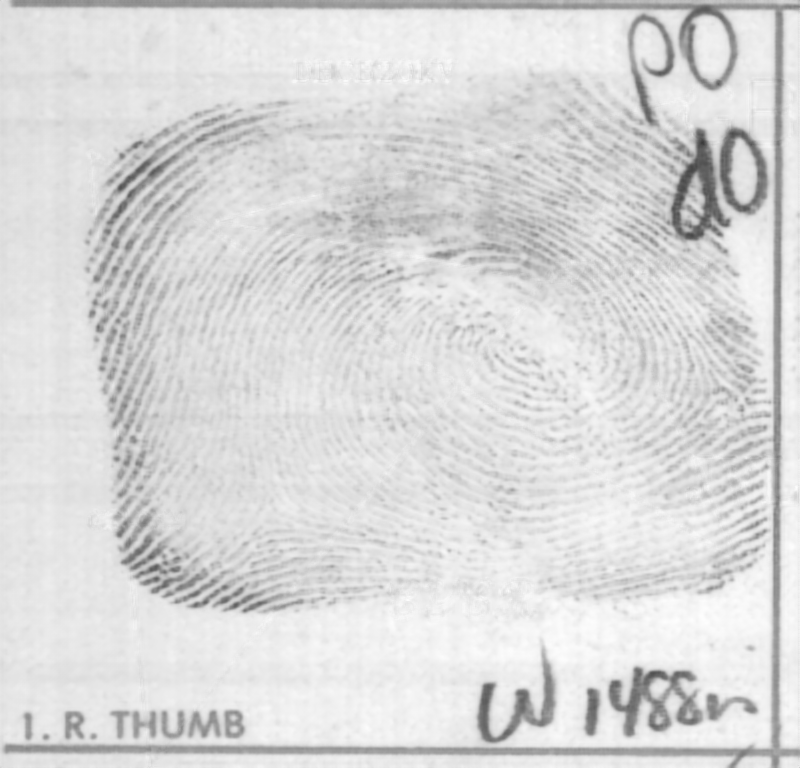 PO
dO
W 1488m
1. R. THUMB